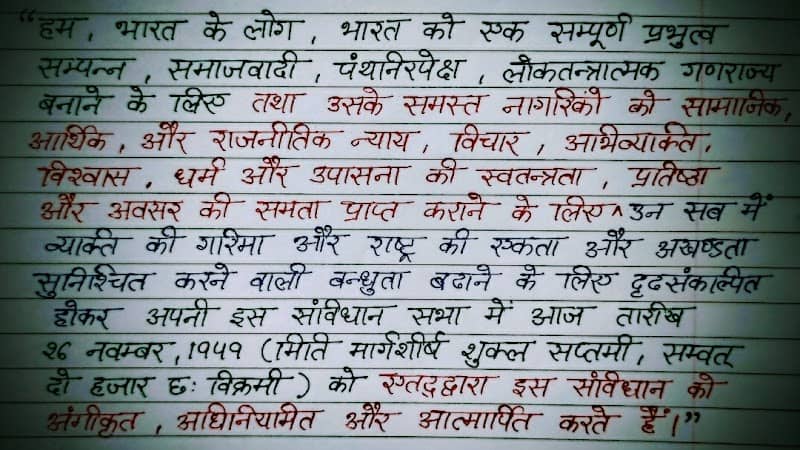 “हम, भारत के लोग, भारत को एक सम्पूर्ण प्रभुत्व
सम्पन्न, समाजवादी, पंथनिरपेक्ष, लोकतन्त्रात्मक गणराज्य
बनाने के लिए तथा उसके समस्त नागरिकों को सामाजिक,
आर्थिक, और राजनीतिक न्याय, विचार, अभिव्यक्ति,
विश्वास, धर्म और उपासना की स्वतन्त्रता, प्रतिष्ठा
और अवसर की समता प्राप्त कराने के लिए ^ उन सब में
व्यक्ति की गरिमा और राष्ट्र की एकता और अखण्डता
सुनिश्चित करने वाली बन्धुता बढाने के लिए दृढसंकल्पित
होकर अपनी इस संविधान सभा में आज तारीख
२६ नवम्बर, १९४९ (मिति मार्गशीर्ष शुक्ल सप्तमी, सम्वत्
दो हजार छः विक्रमी) को एतद्द्वारा इस संविधान को
अंगीकृत, अधिनियमित और आत्मार्पित करते हैं।”